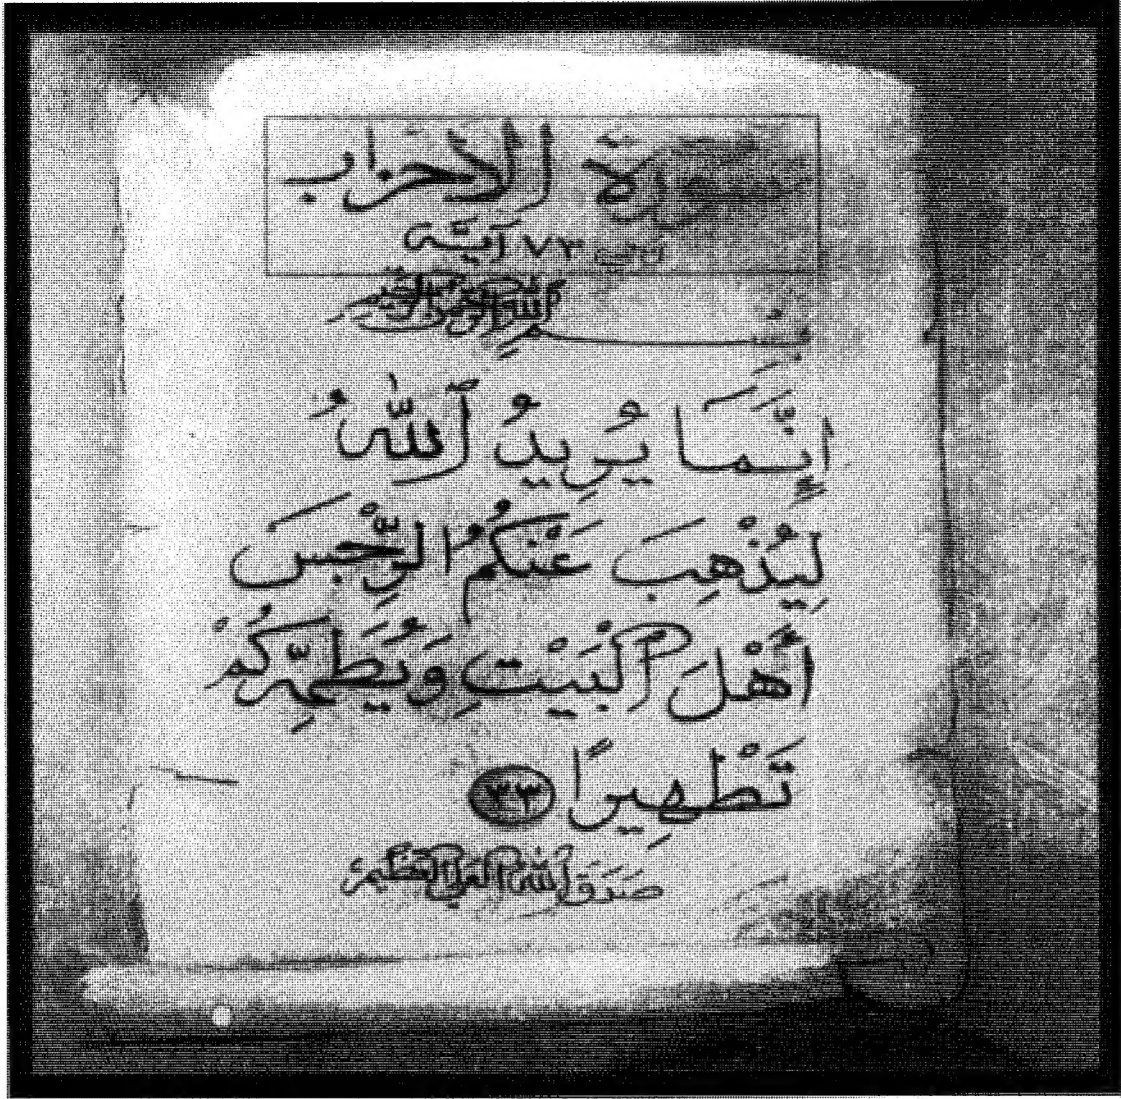 سورة الأحزاب
٧٣ آية
بِسْمِ اللهِ الرَّحْمٰنِ الرَّحِيمِ
إِنَّمَا يُرِيدُ ٱللَّهُ
لِيُذْهِبَ عَنْكُمُ الرِّجْسَ
أَهْلَ ٱلْبَيْتِ وَيُطَهِّرَكُمْ
تَطْهِيرًا ٣٣
صَدَقَ اللهُ الْعَلِيُّ الْعَظِيمُ